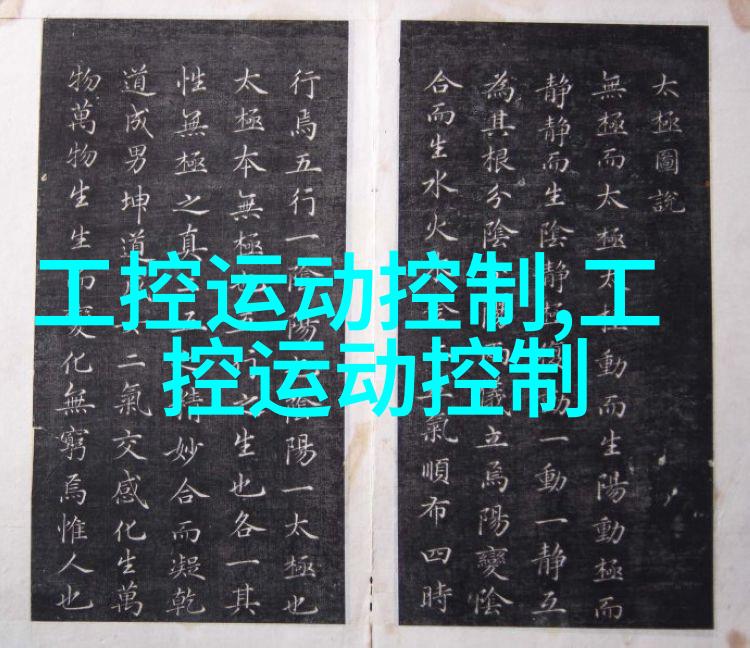 工控运动控制,工
控运动控制
太極圖說
無極而太極太極動而生陽動極而
靜靜而生陰靜極動一動一靜互
為其根分陰兩儀立焉陽變陰
合而生水火氣順布四時
行焉五行一陰陽陰陽一太極也
太極本無極行之生也各一其
性無極之真五之精妙合而凝乾
道成男坤道二氣交感化生萬
物萬物生生而變化無窮焉惟人也